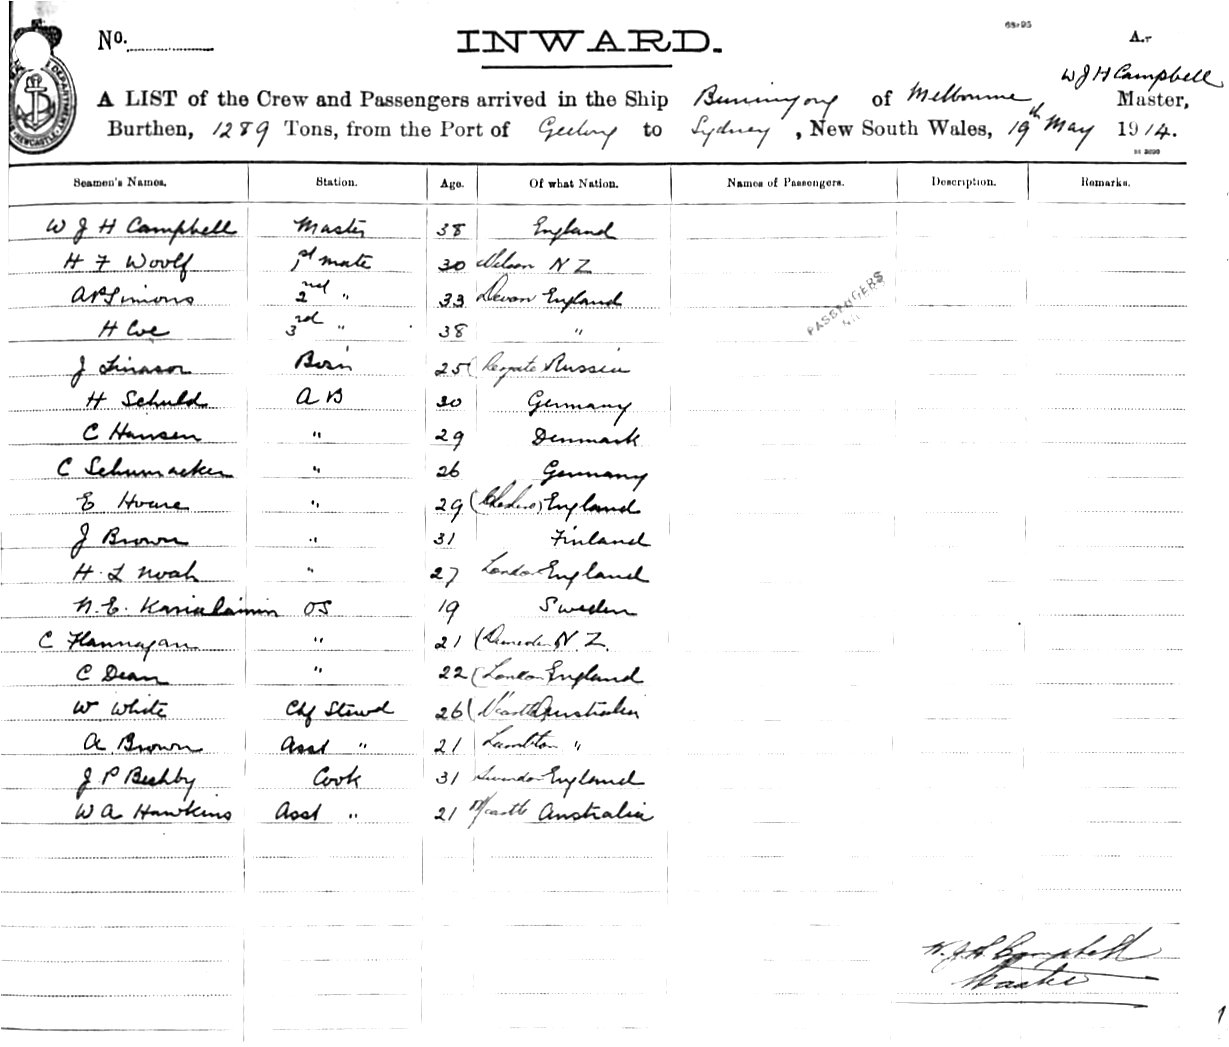 No.
INWARD.
A.
W J H Campbell
A LIST of the Crew and Passengers arrived in the Ship Buninyong of Melbourne Master,
Burthen, 1289 Tons, from the Port of Geelong to Sydney, New South Wales, 19th May 1914.
Seamen's Names. Station. Age. Of what Nation. Names of Passengers. Description. Remarks.
W J H Campbell Master 38 England
H F Woolf 1st mate 30 Nelson N Z
A P Simons 2nd " 33 Devon England
PASSENGERS
H Coe 3rd " 38 "
J Bos'n 25 Russia
H Schuld A B 30 Germany
C Hansen " 29 Denmark
C Schumacker " 26 Germany
E Hoare " 29 England
J Brown " 31 Finland
H. L Noah " 27 London England
N. E. OS 19 Sweden
C Flannagan " 21 (Dunedin) N Z.
C Dean " 22 (London England
W White Chf Stewd 26 (N'castle Australia
A Brown Asst " 21 Lambton "
J P Cook 31 Swindon England
W A Hawkins Asst " 21 N/castle Australia
W. J. H. Campbell
Master
1